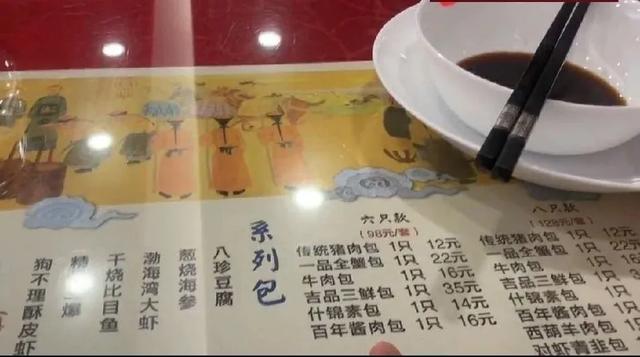 狗不理酥皮虾
精
爆
干烧比目鱼
渤海湾大虾
葱烧海参
八珍豆腐
系列包
六只款
(98元/套)
传统猪肉包 1只 12元
一品全蟹包 1只 22元
牛肉包 1只 16元
吉品三鲜包 1只 35元
什锦素包 1只 14元
百年酱肉包 1只 16元
八只款
(128元/套)
传统猪肉包 1只
一品全蟹包 1只 22
牛肉包 1只
吉品三鲜包 1只
什锦素包 1只
百年酱肉包
西葫羊肉包
对虾青韭包